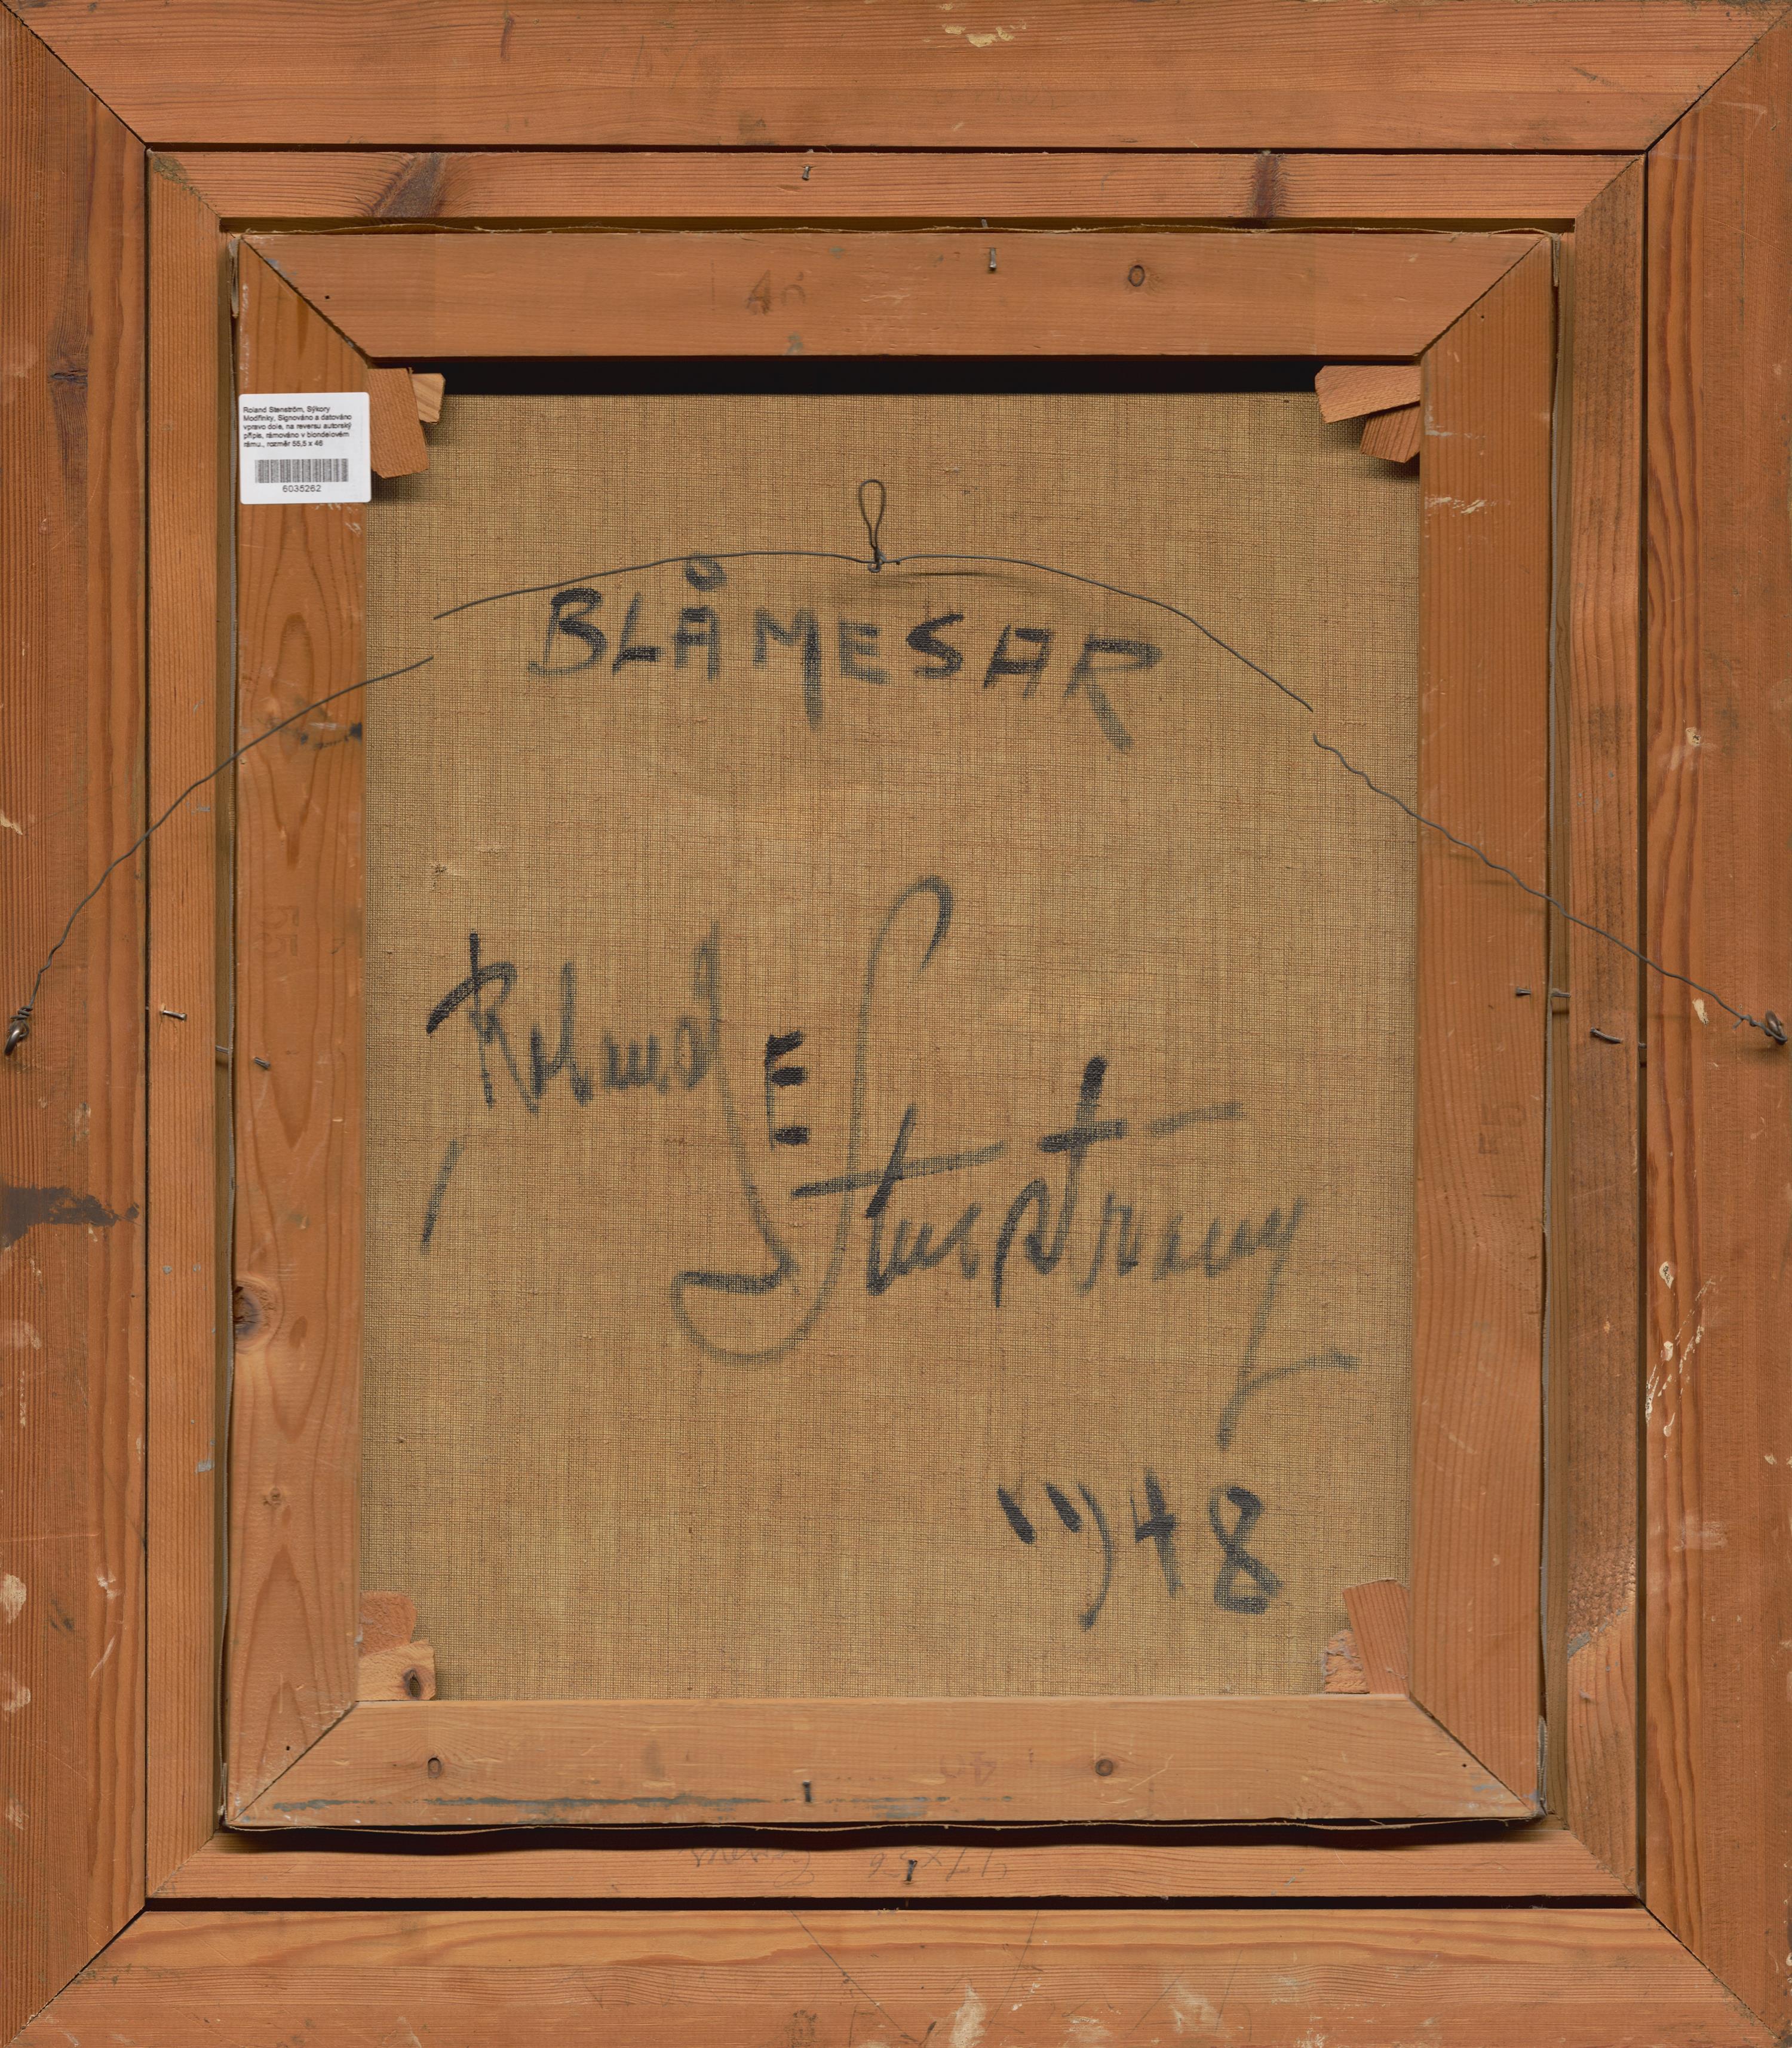 Roland Stenström, Sýkory
Modřinky, Signováno a datováno
vpravo dole, na reversu autorský
přípis, rámováno v blondelovém
rámu., rozměr 55,5 x 46
6035262
BLÅMESAR
Roland
E
Stenström
1948
55
55